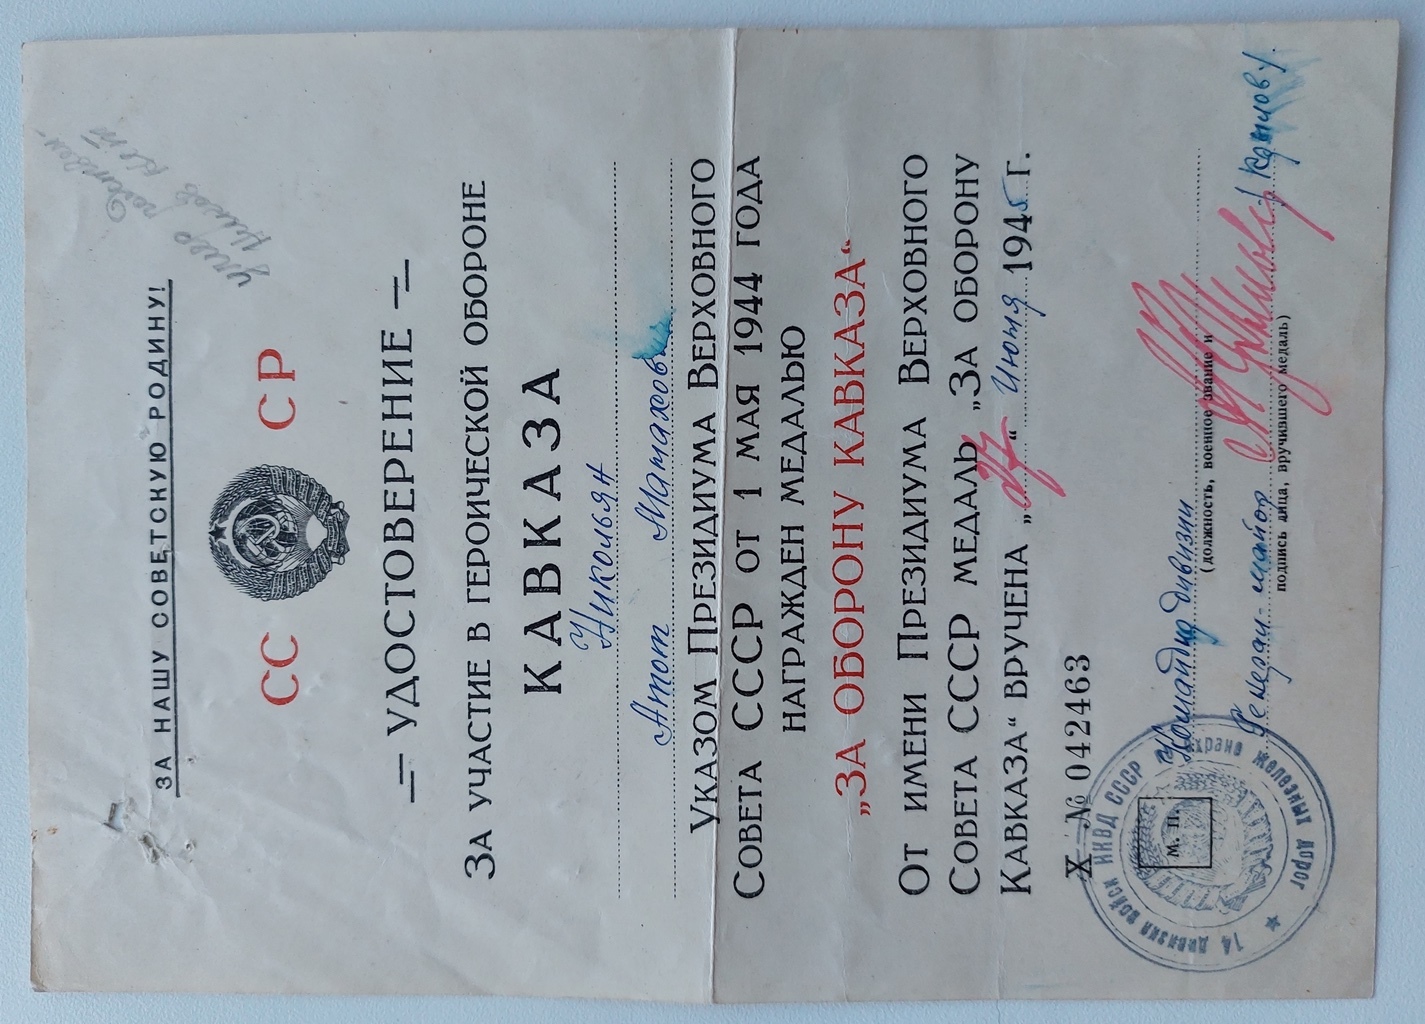 ЗА НАШУ СОВЕТСКУЮ РОДИНУ!
СС СР
УДОСТОВЕРЕНИЕ
ЗА УЧАСТИЕ В ГЕРОИЧЕСКОЙ ОБОРОНЕ
КАВКАЗА
Никольян
Атот
УКАЗОМ ПРЕЗИДИУМА ВЕРХОВНОГО
СОВЕТА СССР ОТ 1 МАЯ 1944 ГОДА
НАГРАЖДЕН МЕДАЛЬЮ
„ЗА ОБОРОНУ КАВКАЗА“
ОТ ИМЕНИ ПРЕЗИДИУМА ВЕРХОВНОГО
СОВЕТА СССР МЕДАЛЬ „ЗА ОБОРОНУ
КАВКАЗА“ ВРУЧЕНА „ “ Июня 1945 г.
Х № 042463
М. П.
14 дивизия войск НКВД СССР по охране железных дорог
Командир дивизии
(должность, военное звание и
Генерал-майор /Крылов/.
подпись лица, вручившего медаль)